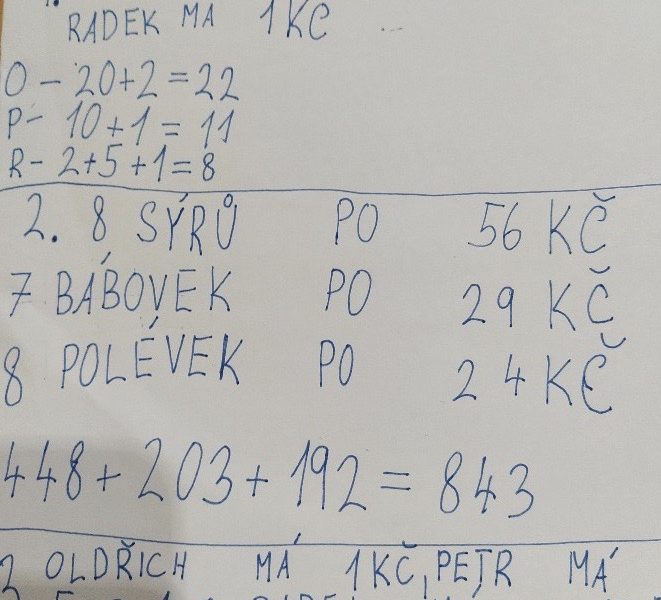 RADEK MA 1 KČ
O - 20+2=22
P- 10+1=11
R- 2+5+1=8
2. 8 SÝRŮ PO 56 KČ
7 BÁBOVEK PO 29 KČ
8 POLÉVEK PO 24 KČ
448+203+192=843
OLDŘICH MÁ 1KČ, PETR MÁ